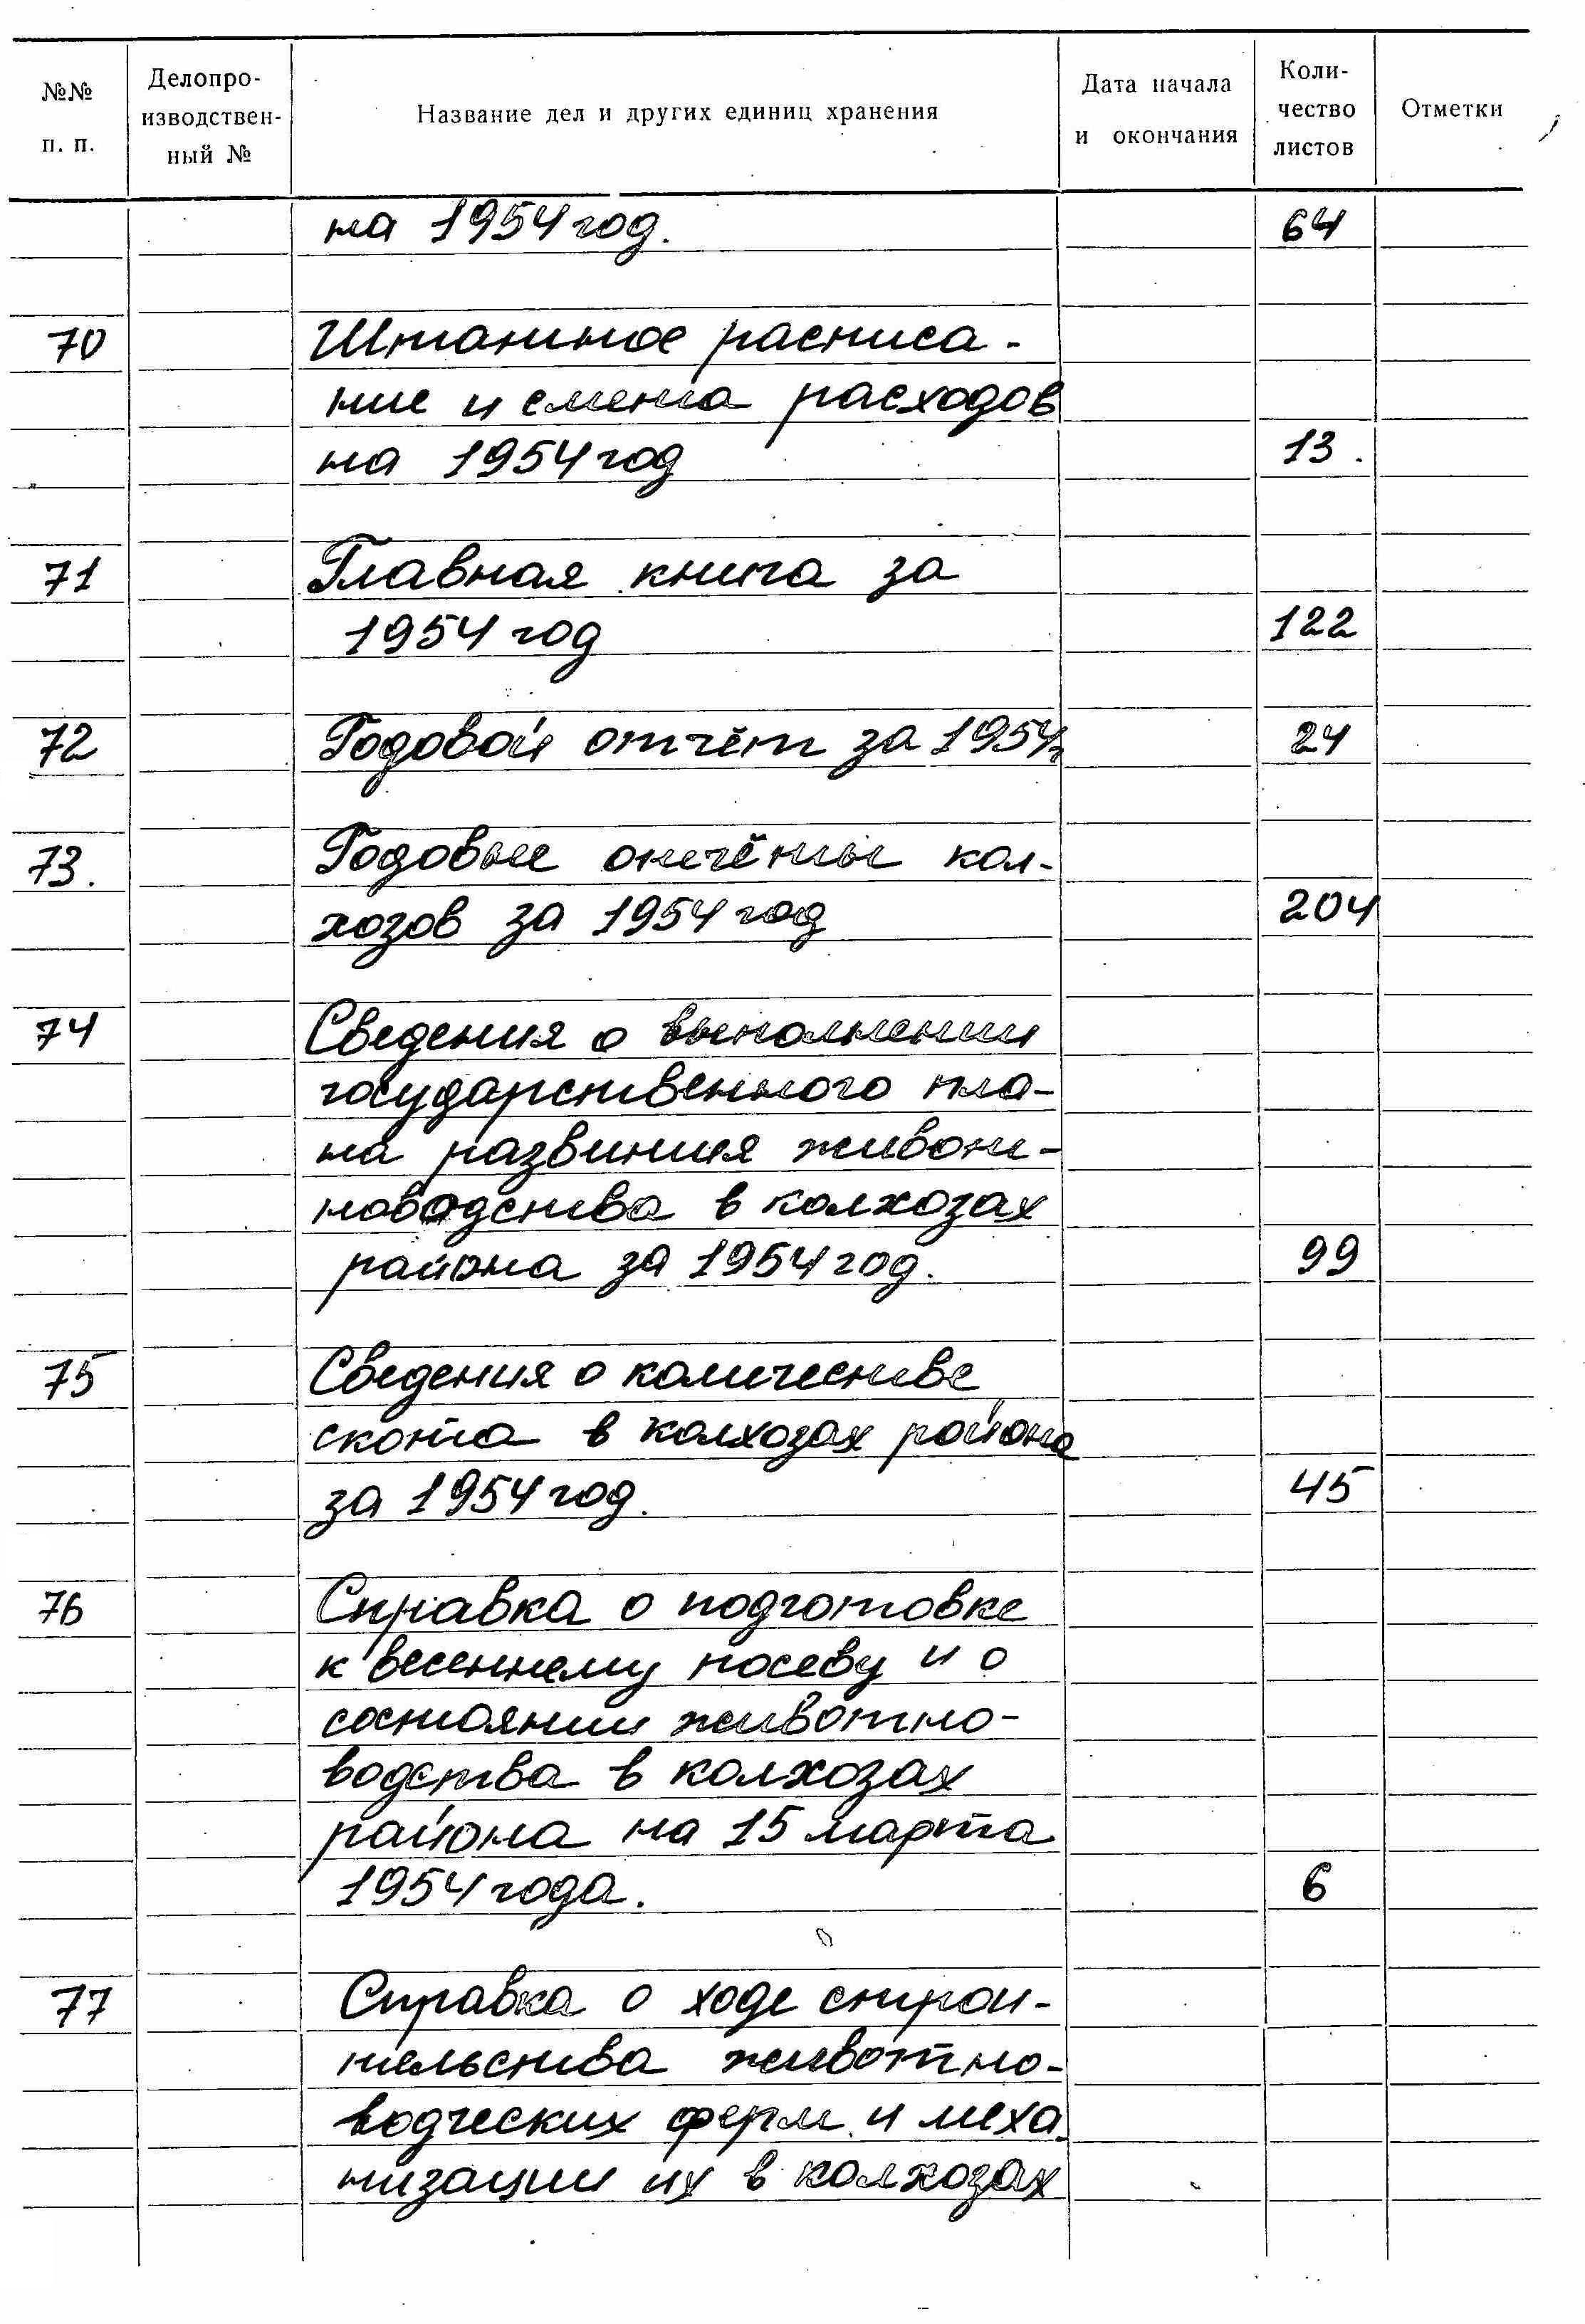 №№ п. п.
Делопро-
изводствен-
ный №
Название дел и других единиц хранения
Дата начала
и окончания
Коли-
чество
листов
Отметки
на 1954 год. 64
70 Штатное расписа-
ние и смета расходов
на 1954 год 13.
71 Главная книга за
1954 год 122
72 Годовой отчёт за 1954г 24
73. Годовые отчёты кол-
хозов за 1954 год 204
74 Сведения о выполнении
государственного пла-
на развития живот-
новодства в колхозах
района за 1954 год. 99
75 Сведения о количестве
скота в колхозах района
за 1954 год. 45
76 Справка о подготовке
к весеннему посеву и о
состоянии животно-
водства в колхозах
района на 15 марта
1954 года. 6
77 Справка о ходе строи-
тельства животно-
водческих ферм и меха-
низации их в колхозах